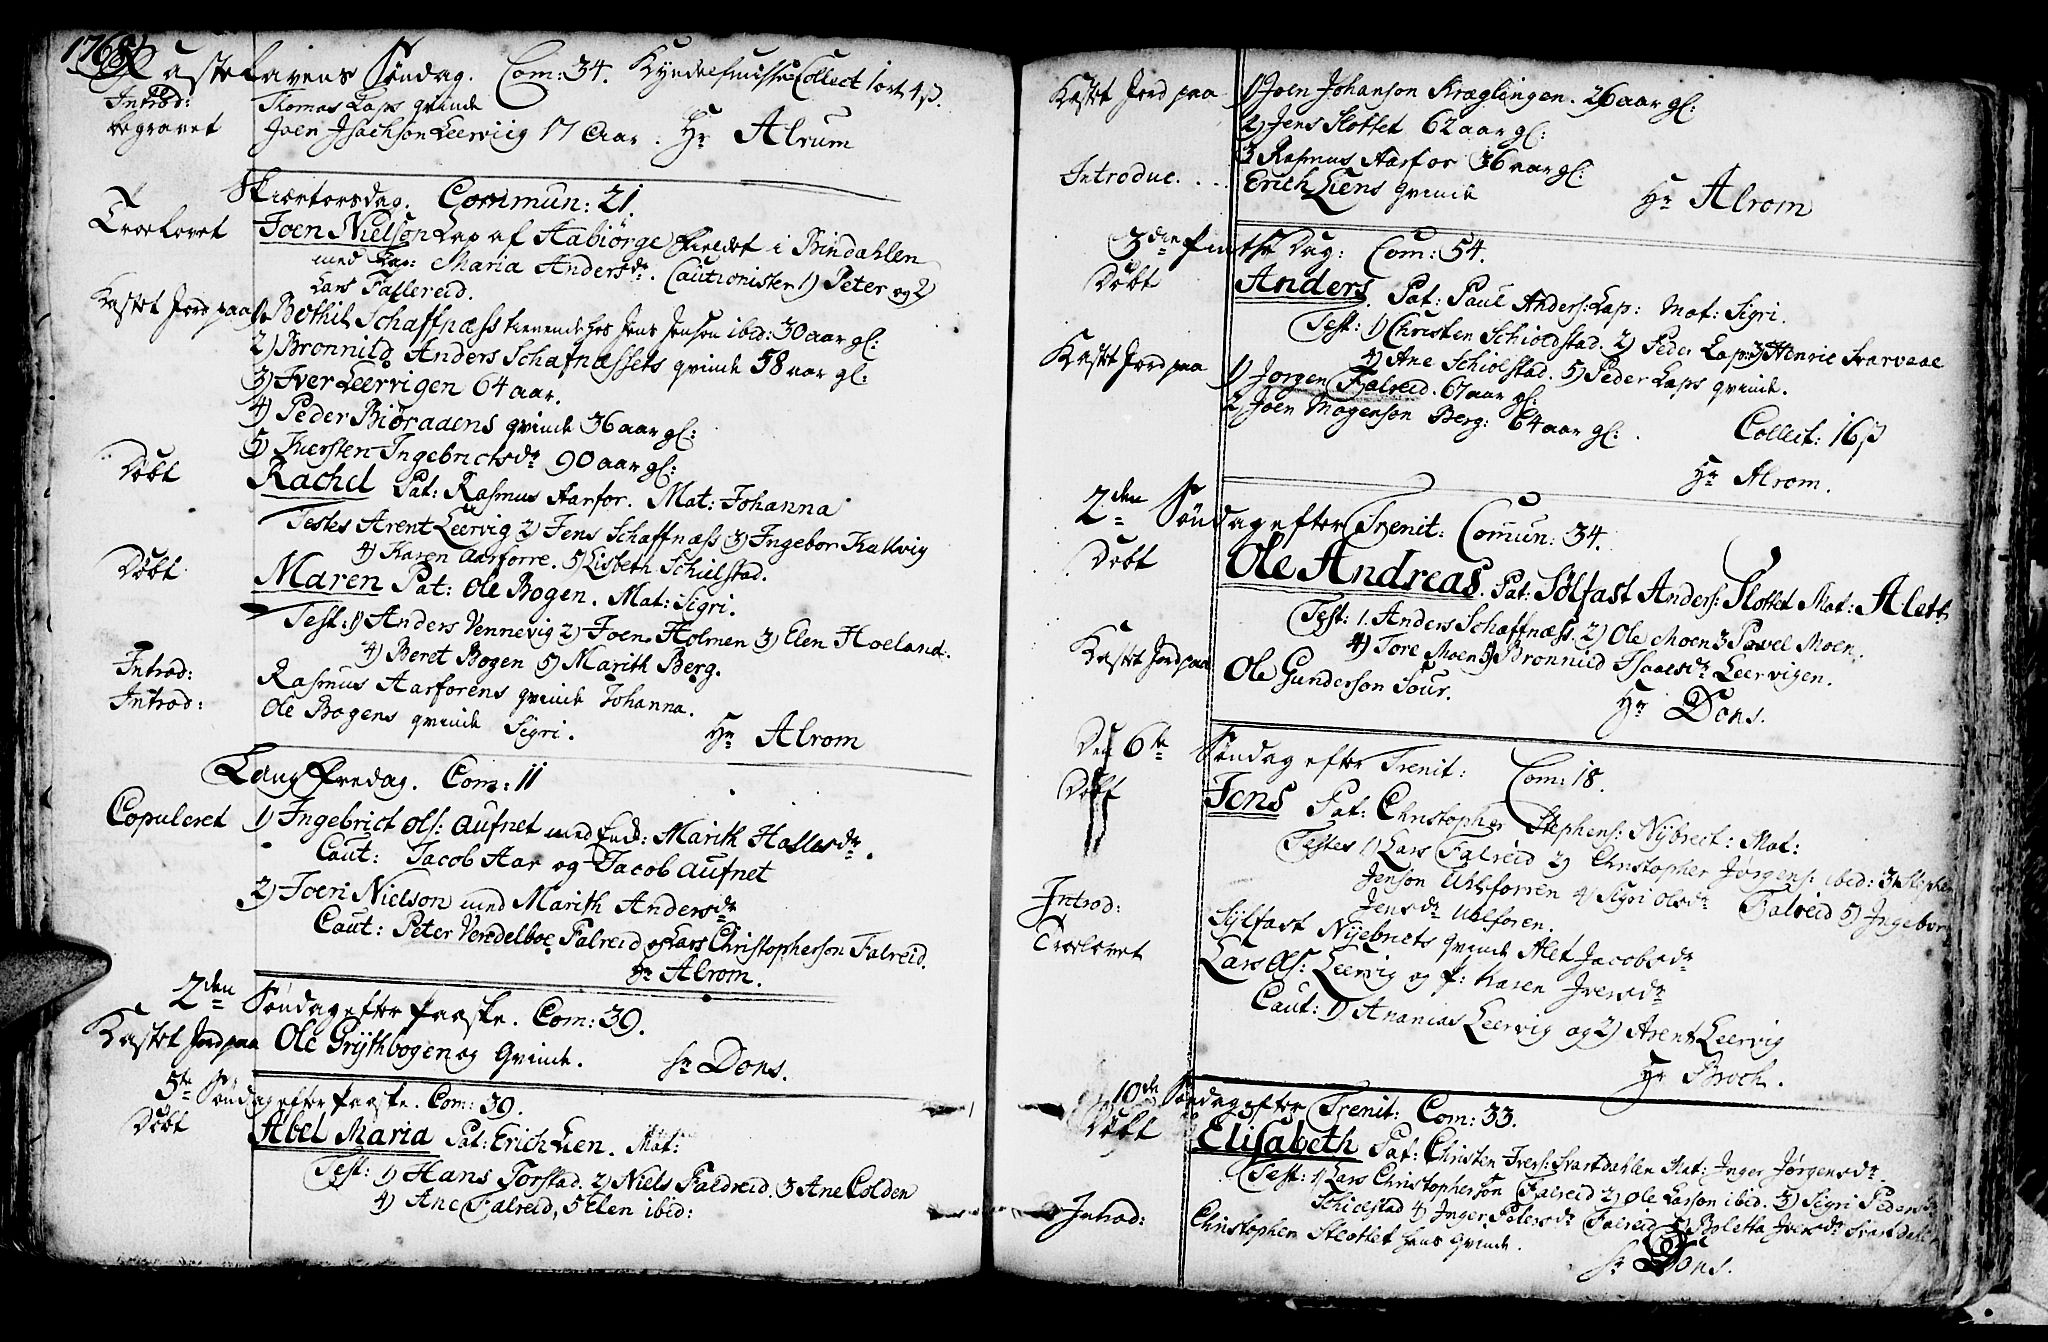 1768
Fastelavens Søndag. Com: 34. Kyndelsmisse Collect 1 ort 4 β.
Introd: Thomas Laps qvinde
begravet Joen Isachson Leerviig 17 Aar. Hr Alrum
Skiærtorsdag. Commun: 21.
Troelovet Joen Nielson Lap af Aabiørge fieldet i Bindahlen
med Lap: Maria Andersdr. Cautionister 1) Peter og 2)
Lars Fallereid.
Kastet Jord paa 1. Bothil Schaffnæss tienende hos Jens Jenson ibid: 30 aar gl:
2) Bronnild Anders Schafnæssets qvinde 58 aar gl:
3) Iver Leervigen 64 aar.
4) Peder Biøraaens qvinde 36 aar gl:
5) Kiersten Ingebrictsdr 90 aar gl:
Døbt Rachel Pat: Rasmus Aarfor. Mat: Johanna
Testes Arent Leervig 2) Jens Schaffnæss 3) Ingebor Kallvig
4) Karen Aarforre. 5) Lisbeth Schielstad.
Døbt Maren Pat: Ole Bogen. Mat: Sigri.
Test: 1) Anders Vennevig 2) Joen Holmen 3) Elen Hoeland.
4) Beret Bogen 5) Marith Berg.
Introd: Rasmus Aarforens qvinde Johanna.
Introd: Ole Bogens qvinde Sigri. Hr Alrom
Lang Fredag. Com: 11
Copuleret 1) Ingebrict Ols: Aufnet med Ench: Marith Hallesdr.
Caut: Jacob Aar og Jacob Aufnet
2) Joen Nielson med Marith Andersdr
Caut: Peter Vendelboe Falreid og Lars Christopherson Falreid.
Hr Alrom.
2den Søndag efter Paaske. Com: 39.
Kastet Jord paa Ole Grythbogen og Qvinde. Hr Dons.
5te Søndag efter Paaske. Com: 39.
Døbt Abel Maria Pat: Erich Lien. Mat:
Test: 1) Hans Torstad. 2) Niels Faldreid. 3 Ane Colden
4) Ane Falreid, 5 Elen ibid:
Kastet Jord paa 1) Joen Johanson Kræglingen. 26 aar gl:
2) Jens Slottet 62 aar gl:
3 Rasmus Aarfor 36 aar gl:
Introduc. Erich Liens qvinde Hr Alrom
3die Pintse Dag: Com: 54.
Døbt Anders. Pat: Paul Anders: Lap: Mat: Sigri.
Test: 1) Christen Schioldstad. 2) Peder Lap: 3) Henric Svarvaae
4) Ane Schiolstad. 5) Peder Laps qvinde.
Kastet Jord paa 1) Jørgen Falreid. 67 aar gl:
2 Joen Mogenson Berg: 64 aar gl: Collect: 16 β
Hr Alrom.
2den Søndag efter Trenit: Comun: 34.
Døbt Ole Andreas. Pat: Sølfast Anders: Slottet Mat: Alett
Test: 1. Anders Schaffnæss. 2) Ole Moen 3 Pavel Moen.
4) Tore Moen 5) Bronnild Isaacsdr Leervigen.
Kastet Jord paa Ole Gunderson Sour. Hr Dons.
Den 6te Søndag efter Trenit: Com: 18.
Døbt Jens Pat: Christopher Stephens: Nybrect: Mat:
Testes 1) Lars Falreid 2) Christopher Jørgens: ibid: 3) Stephen
Jenson Uhlforren 4) Sigri Olsdr Falreid 5) Ingebor
Jensdr Ulforen.
Introd: Sylfast Nyebricts qvinde Alet Jacobsdr
Troelovet Lars Ols: Leervig og P: Karen Iversdr
Caut: 1) Ananias Leervig og 2) Arent Leervig
Hr Broch.
10de Søndag efter Trenit: Com: 33.
Døbt Elisabeth Pat: Christen Ivers: Svartdahlen Mat: Inger Jørgensdr.
Test: 1) Lars Christopherson Falreid 2) Ole Larson ibid. 3) Sigri Pedersdr
Schielstad 4) Inger Petersdr Falreid 5) Boletta Iversdr Svartdahlen
Introd: Christopher Slottet hans Qvinde.
Hr Dons.